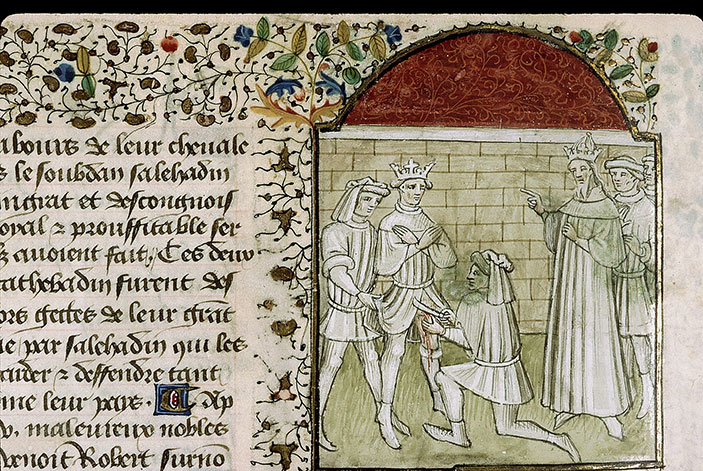 abours de leur cheuale
s le soubdan salehadin
ingrat et descongnois
oyal ⁊ prouffitable ser
z auoient fait. Ces deux
cathebadin furent des
ors gectes de leur grāt
ue par salehadin qui les
cuder ⁊ deffendre tant
me leur pays. A Ap
maleureux nobles
Benoit Robert surno